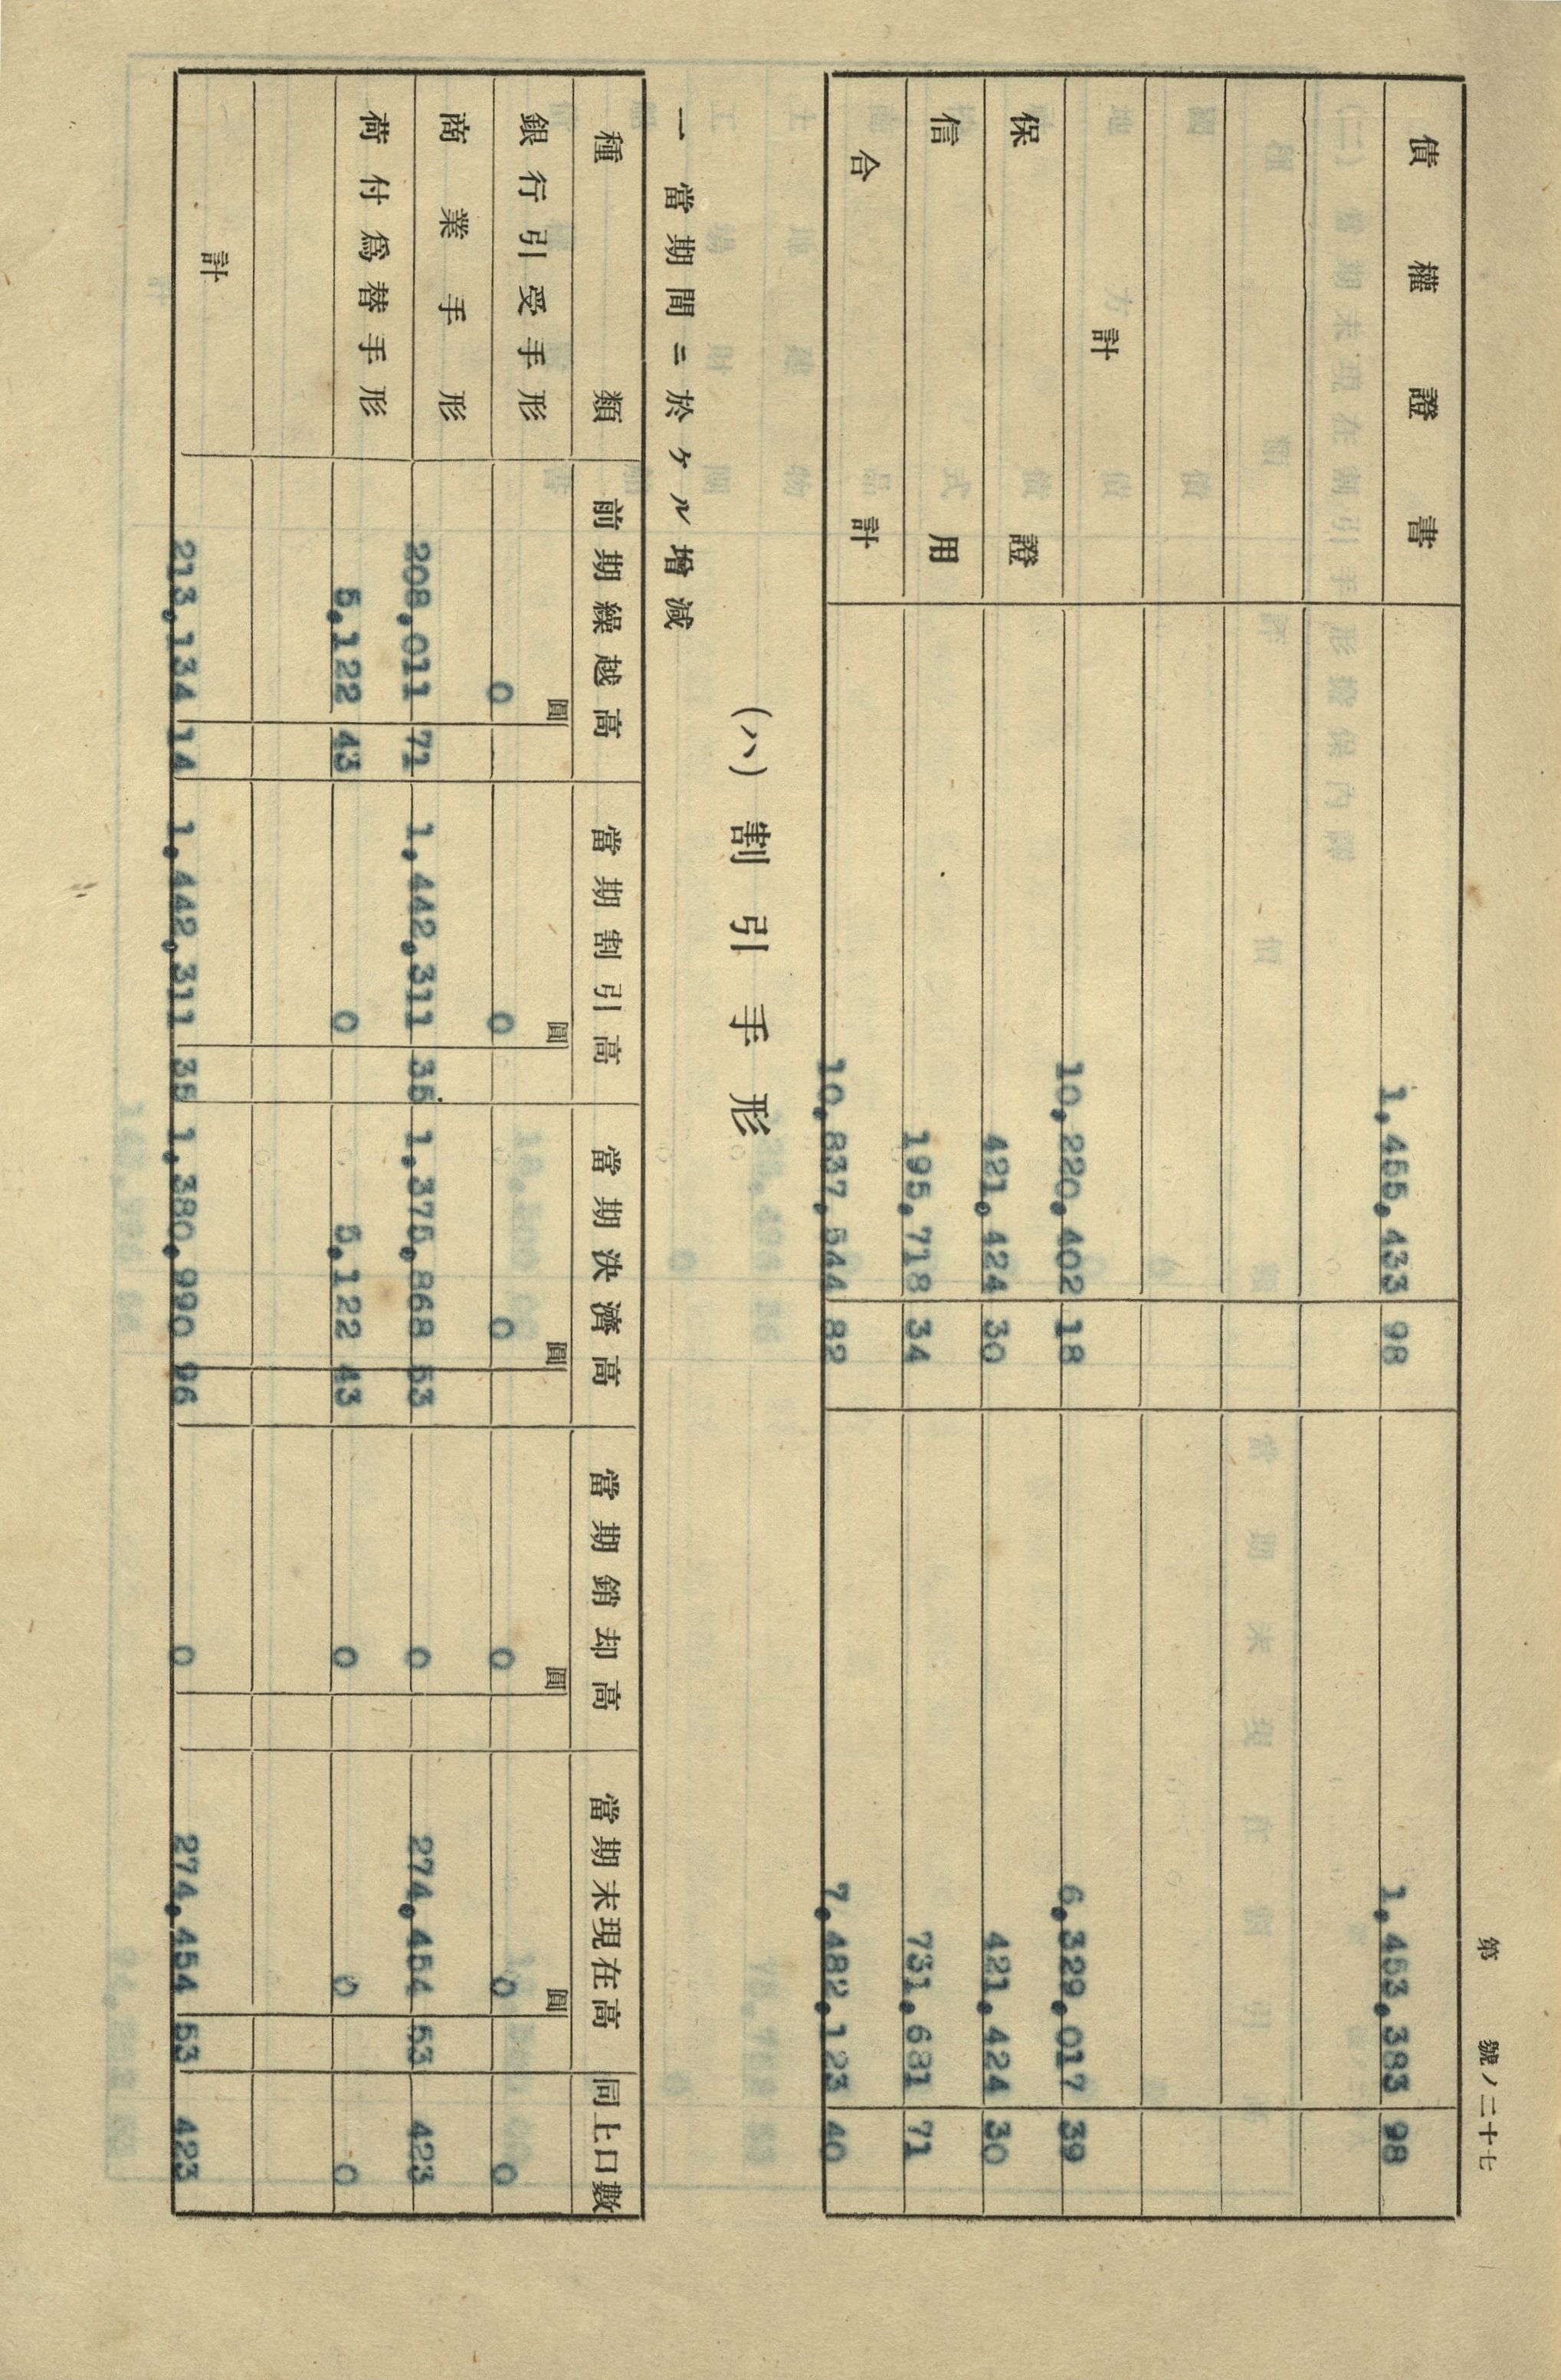 第 號ノ二十七
債權證書 1,455,433 98 1,453,383 98
計 10,220,402 18 6,329,017 39
保證 421,424 30 421,424 30
信用 195,718 34 731,681 71
合計 10,837,544 82 7,482,123 40
(ハ) 割引手形
一 當期間ニ於ケル增減
種類 前期繰越高 當期割引高 當期決濟高 當期銷却高 當期末現在高 同上口數
圓 圓 圓 圓 圓
銀行引受手形 0 0 0 0 0 0
商業手形 208,011 71 1,442,311 35 1,375,868 53 0 274,454 53 423
荷付爲替手形 5,122 43 0 5,122 43 0 0 0
計 213,134 14 1,442,311 35 1,380,990 96 0 274,454 53 423